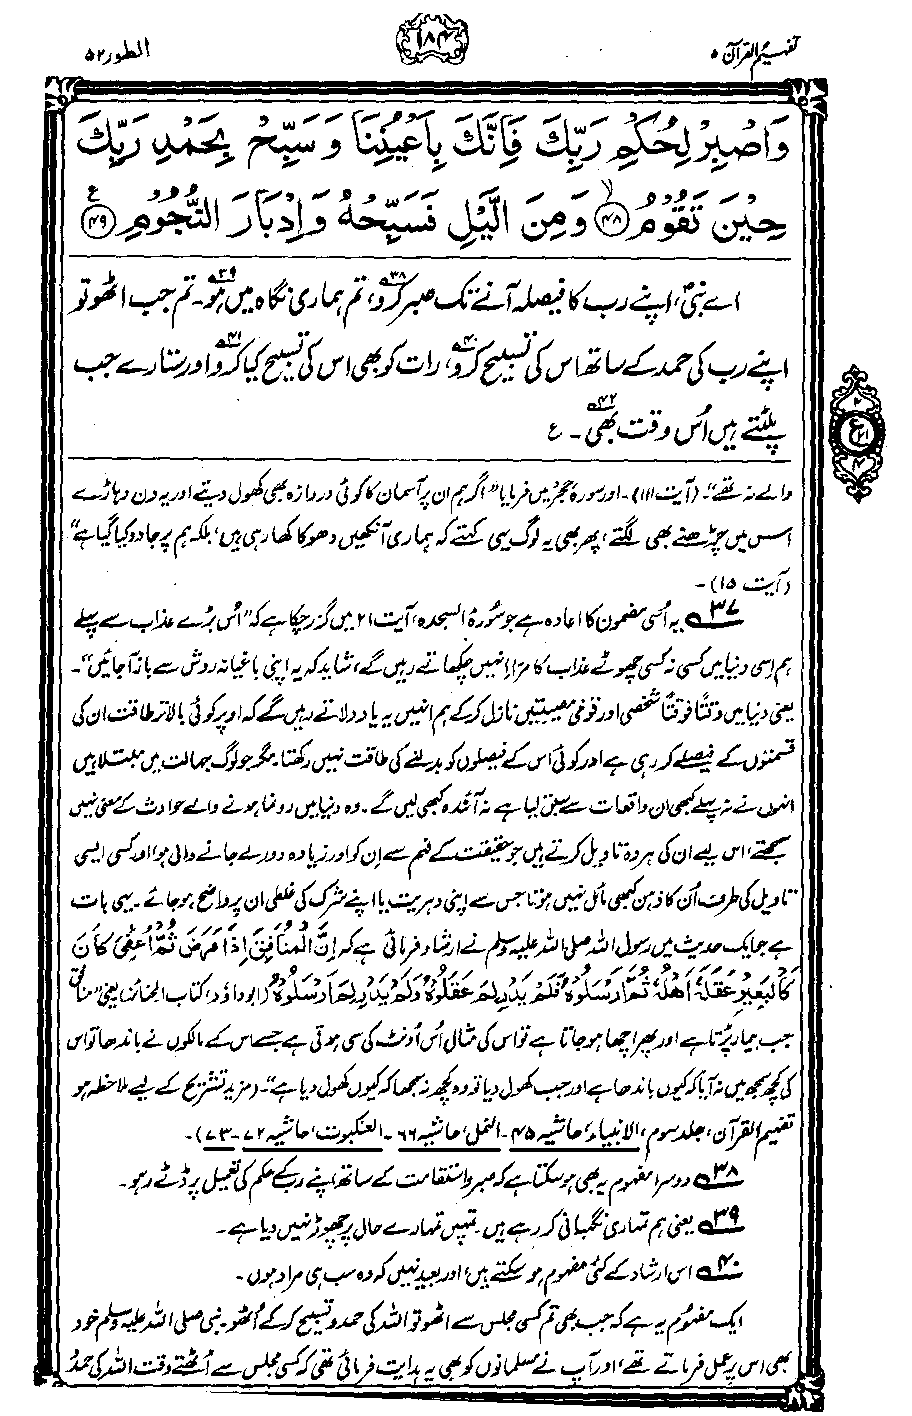 تفہیم القرآن ۵
۱۸۴
الطور ۵۲
وَاصْبِرْ لِحُكْمِ رَبِّكَ فَاِنَّكَ بِاَعْيُنِنَا وَ سَبِّحْ بِحَمْدِ رَبِّكَ
حِيْنَ تَقُوْمُ ﴿۴۸﴾ وَ مِنَ الَّيْلِ فَسَبِّحْهُ وَ اِدْبَارَ النُّجُوْمِ ﴿۴۹﴾ ع
اے نبیؐ، اپنے رب کا فیصلہ آنے تک صبر کرو،۳۸ تم ہماری نگاہ میں ہو۔۳۹ تم جب اٹھو تو
اپنے رب کی حمد کے ساتھ اس کی تسبیح کرو،۴۰ رات کو بھی اس کی تسبیح کیا کرو۴۱ اور ستارے جب
پلٹتے ہیں اُس وقت بھی۔۴۲ ع
والے نہ تھے"۔ (آیت ۱۱۱)۔ اور سورۂ حجر میں فرمایا "اگر ہم ان پر آسمان کا کوئی دروازہ بھی کھول دیتے اور یہ دن دہاڑے
اس میں چڑھنے بھی لگتے، پھر بھی یہ لوگ یہی کہتے کہ ہماری آنکھیں دھوکا کھا رہی ہیں، بلکہ ہم پر جادو کیا گیا ہے"
(آیت ۱۵)۔
۳۷ یہ اُسی مضمون کا اعادہ ہے جو سورۂ السجدہ، آیت ۲۱ میں گزر چکا ہے کہ "اُس بڑے عذاب سے پہلے
ہم اسی دنیا میں کسی نہ کسی چھوٹے عذاب کا مزا انہیں چکھاتے رہیں گے، شاید کہ یہ اپنی باغیانہ روش سے باز آ جائیں"۔
یعنی دنیا میں وقتًا فوقتًا شخصی اور قومی مصیبتیں نازل کر کے ہم انہیں یہ یاد دلاتے رہیں گے کہ اوپر کوئی بالاتر طاقت ان کی
قسمتوں کے فیصلے کر رہی ہے اور کوئی اس کے فیصلوں کو بدلنے کی طاقت نہیں رکھتا۔ مگر جو لوگ جہالت میں مبتلا ہیں
انہوں نے نہ پہلے کبھی ان واقعات سے سبق لیا ہے نہ آئندہ کبھی لیں گے۔ وہ دنیا میں رونما ہونے والے حوادث کے معنی نہیں
سمجھتے، اس لیے ان کی ہر وہ تاویل کرتے ہیں جو حقیقت کے فہم سے ان کو اور زیادہ دور لے جانے والی ہو، اور کسی ایسی
تاویل کی طرف اُن کا ذہن کبھی مائل نہیں ہوتا جس سے اپنی دہریت یا اپنے شرک کی غلطی ان پر واضح ہو جائے۔ یہی بات
ہے جو ایک حدیث میں رسول اللہ صلی اللہ علیہ وسلم نے ارشاد فرمائی ہے کہ اِنَّ الْمُنَافِقَ اِذَا مَرِضَ ثُمَّ اُعْفِیَ کَانَ
کَالْبَعِیْرِ عَقَلَہٗ اَھْلُہٗ ثُمَّ اَرْسَلُوْہُ فَلَمْ یَدْرِ لِمَ عَقَلُوْہُ وَلَمْ یَدْرِ لِمَ اَرْسَلُوْہُ (ابو داؤد، کتاب الجنائز) یعنی "منافق
جب بیمار پڑتا ہے اور پھر اچھا ہو جاتا ہے تو اس کی مثال اُس اُونٹ کی سی ہوتی ہے جسے اس کے مالکوں نے باندھا تو اس
کی کچھ سمجھ میں نہ آیا کہ کیوں باندھا ہے اور جب کھول دیا تو وہ کچھ نہ سمجھا کہ کیوں کھول دیا ہے"۔ (مزید تشریح کے لیے ملاحظہ ہو
تفہیم القرآن، جلد سوم، الانبیاء، حاشیہ ۴۵۔ النمل، حاشیہ ۶۶۔ العنکبوت، حاشیہ ۷۲-۷۳)۔
۳۸ دوسرا مفہوم یہ بھی ہو سکتا ہے کہ صبر و استقامت کے ساتھ اپنے رب کے حکم کی تعمیل پر ڈٹے رہو۔
۳۹ یعنی ہم تمہاری نگہبانی کر رہے ہیں۔ تمہیں تمہارے حال پر چھوڑ نہیں دیا ہے۔
۴۰ اس ارشاد کے کئی مفہوم ہو سکتے ہیں، اور بعید نہیں کہ وہ سب ہی مراد ہوں۔
ایک مفہوم یہ ہے کہ جب بھی تم کسی مجلس سے اٹھو تو اللہ کی حمد و تسبیح کر کے اُٹھو۔ نبی صلی اللہ علیہ وسلم خود
بھی اس پر عمل فرماتے تھے، اور آپ نے مسلمانوں کو بھی یہ ہدایت فرمائی تھی کہ کسی مجلس سے اُٹھتے وقت اللہ کی حمد
۲
ع
۴